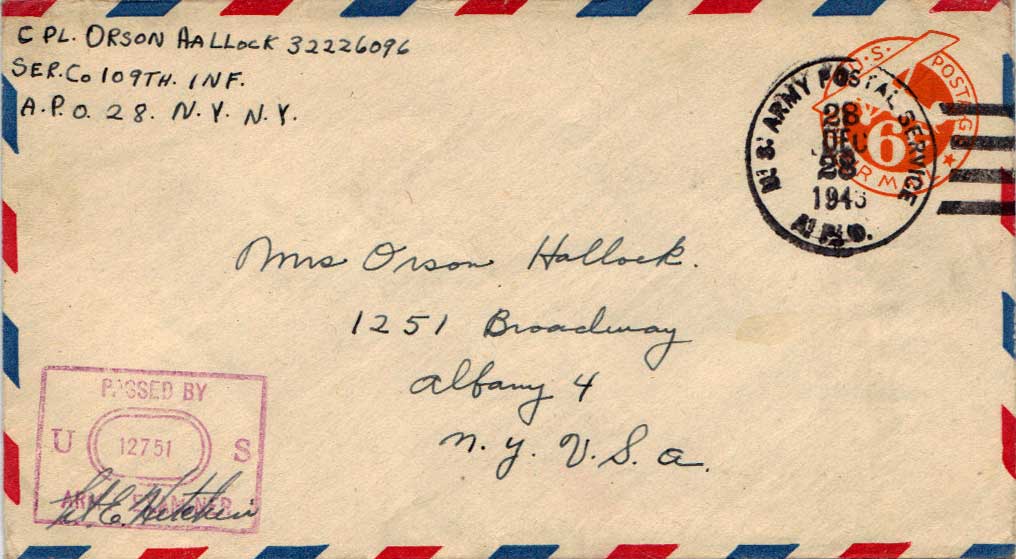 CPL. ORSON HALLOCK 32226096
SER. CO 109TH. INF.
A.P.O. 28. N.Y. N.Y.
U.S. POSTAGE
6¢
AIR MAIL
U.S. ARMY POSTAL SERVICE
28
DEC
28
1943
A.P.O.
Mrs Orson Hallock.
1251 Broadway
Albany 4
N. Y. U. S. A.
PASSED BY
U 12751 S
ARMY EXAMINER